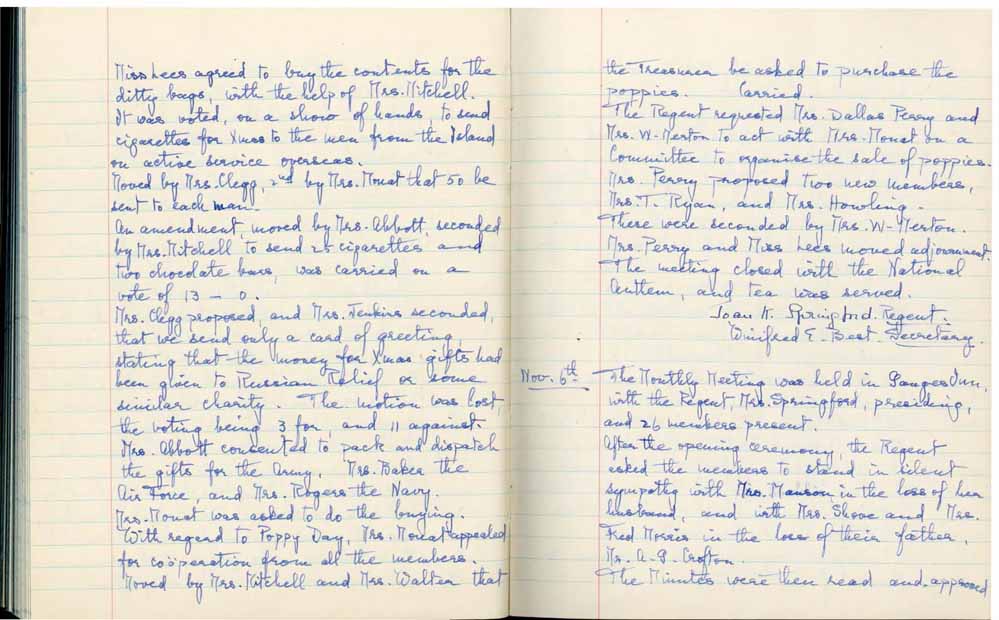 Miss Lees agreed to buy the contents for the
ditty bags, with the help of Mrs. Mitchell.
It was voted, on a show of hands, to send
cigarettes for Xmas to the men from the Island
on active service overseas.
Moved by Mrs. Clegg, 2nd by Mrs. Mouat that 50 be
sent to each man.
An amendment, moved by Mrs. Abbott, seconded
by Mrs. Mitchell to send 25 cigarettes and
two chocolate bars, was carried on a
vote of 13 – 0.
Mrs. Clegg proposed, and Mrs. Jenkins seconded,
that we send only a card of greeting,
stating that the money for Xmas gifts had
been given to Russian Relief or some
similar charity. The motion was lost,
the voting being 3 for, and 11 against.
Mrs. Abbott consented to pack and dispatch
the gifts for the Army, Mrs. Baker the
Air Force, and Mrs. Rogers the Navy.
Mrs. Mouat was asked to do the buying.
With regard to Poppy Day, Mrs. Mouat appealed
for coöperation from all the members.
Moved by Mrs. Mitchell and Mrs. Walter that
the Treasurer be asked to purchase the
poppies. Carried.
The Regent requested Mrs. Dallas Perry and
Mrs. W-Merton to act with Mrs. Mouat on a
Committee to organise the sale of poppies.
Mrs. Perry proposed two new members,
Mrs. T. Ryan, and Mrs. Howling.
There were seconded by Mrs. W-Merton.
Mrs. Perry and Miss Lees moved adjournment.
The meeting closed with the National
Anthem, and tea was served.
Joan K. Springford. Regent.
Winifred E. Best. Secretary.
Nov. 6th The Monthly Meeting was held in Ganges Inn,
with the Regent, Mrs. Springford, presiding,
and 26 members present.
After the opening ceremony, the Regent
asked the members to stand in silent
sympathy with Mrs. Manson in the loss of her
husband, and with Mrs. Shove and Mrs.
Fred Morris in the loss of their father,
Mr. A. G. Crofton.
The Minutes were then read and approved